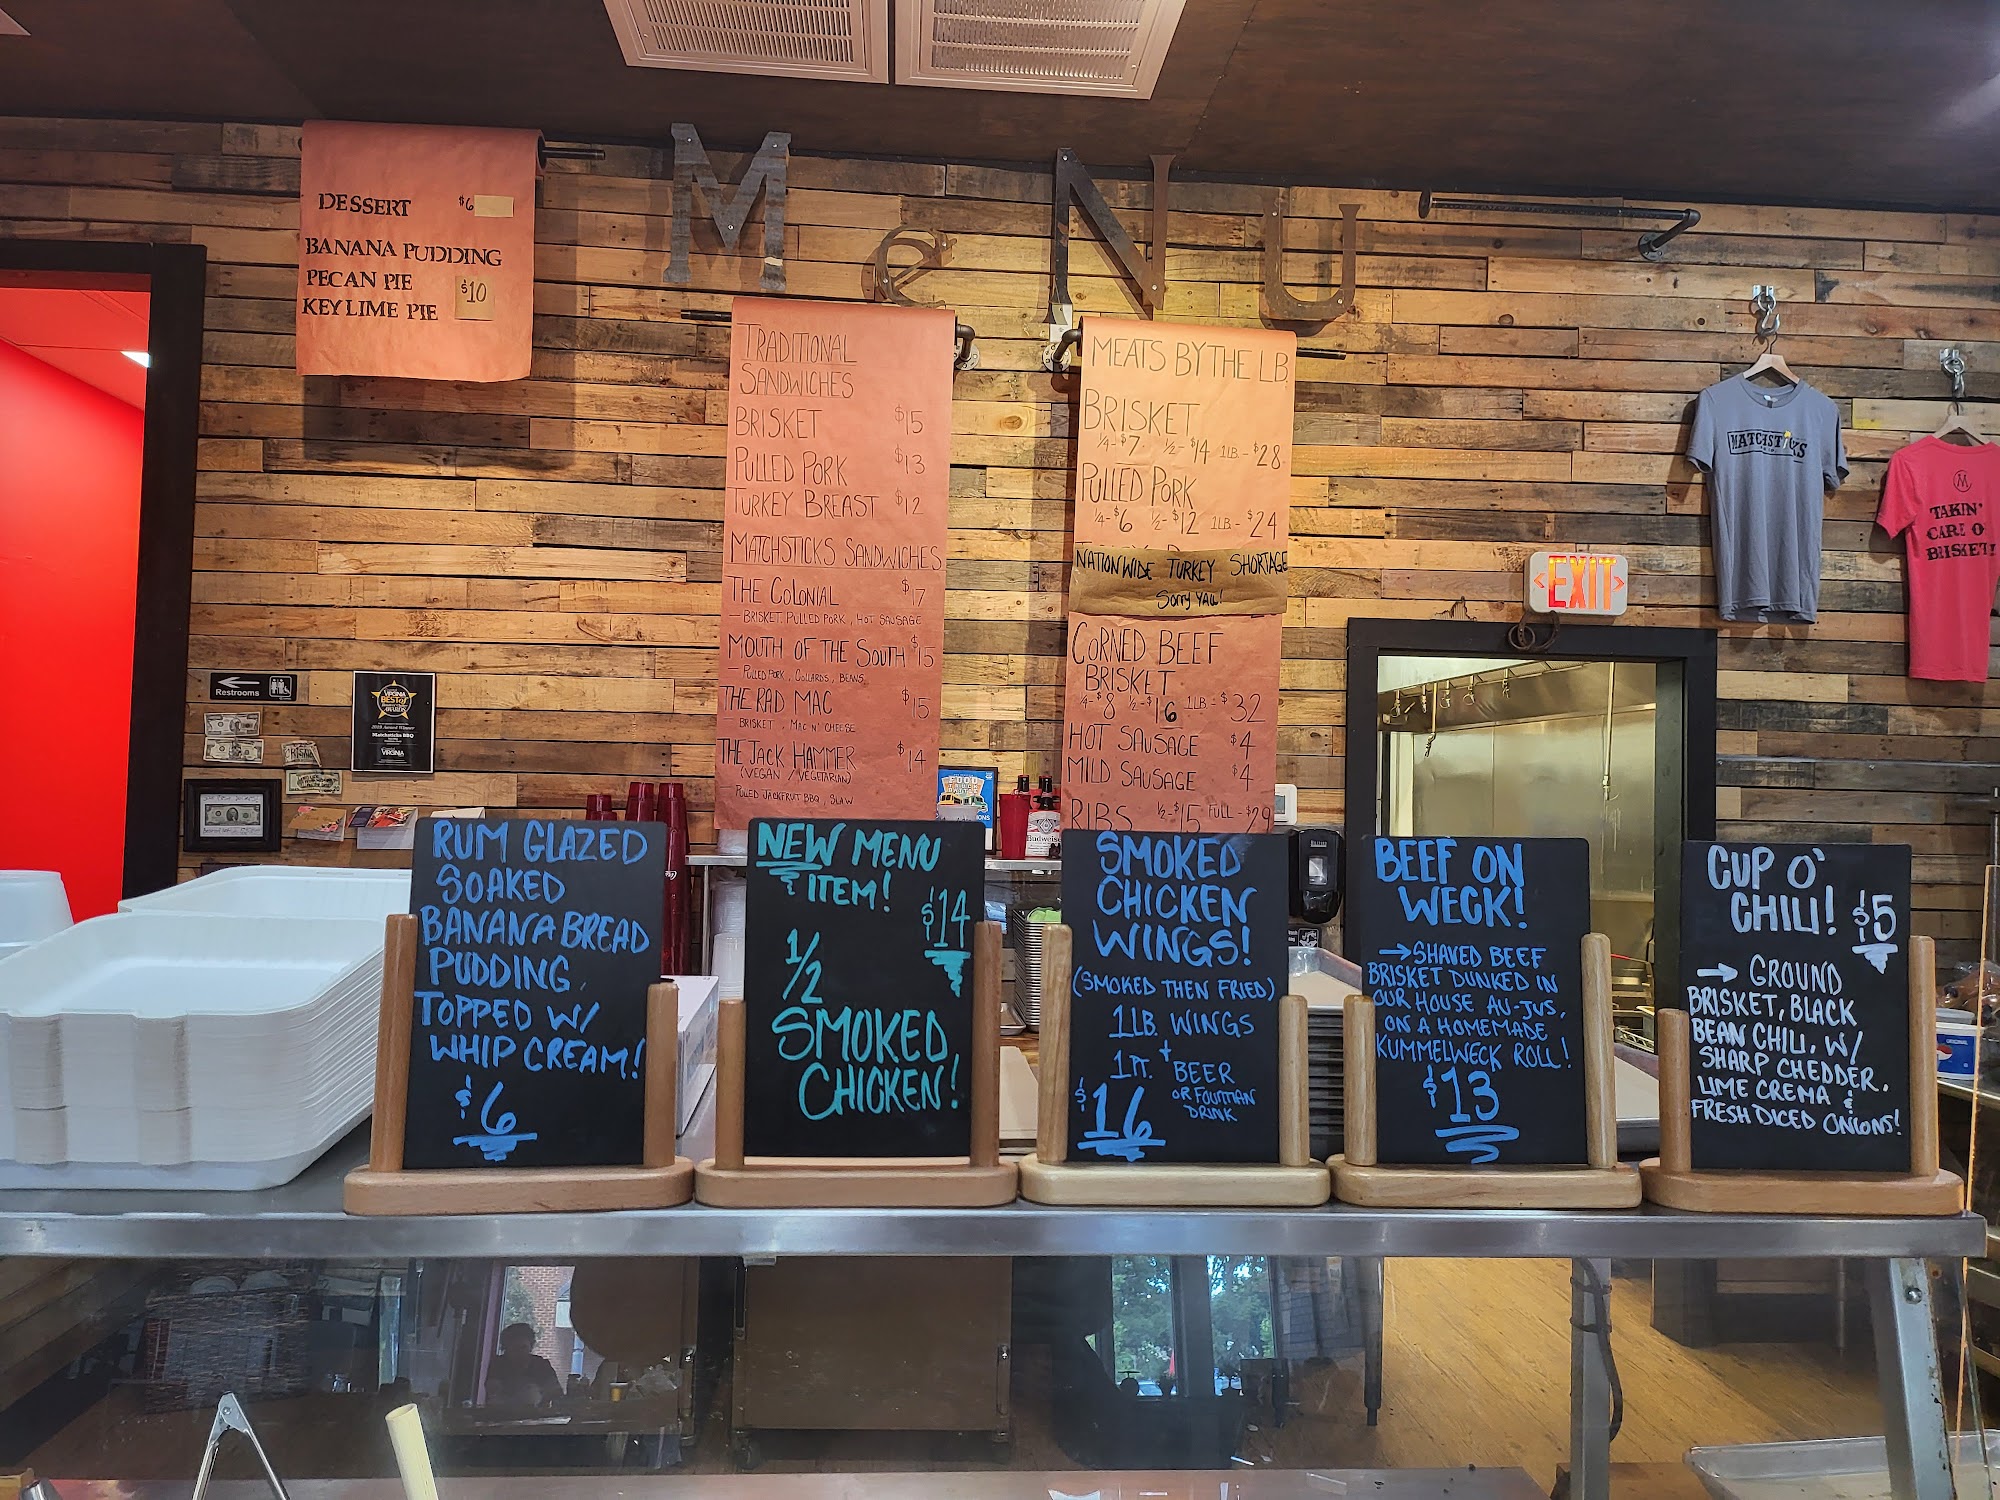 MeNU
DESSERT $6
BANANA PUDDING
PECAN PIE
KEY LIME PIE
$10
TRADITIONAL
SANDWICHES
BRISKET $15
PULLED PORK $13
TURKEY BREAST $12
MATCHSTICKS SANDWICHES
THE COLONIAL $17
— BRISKET, PULLED PORK, HOT SAUSAGE
MOUTH OF THE SOUTH $15
— PULLED PORK, COLLARDS, BEANS
THE RAD MAC $15
— BRISKET, MAC N' CHEESE
THE JACK HAMMER $14
(VEGAN / VEGETARIAN)
PULLED JACKFRUIT BBQ, SLAW
MEATS BY THE LB.
BRISKET
1/4-$7 1/2-$14 1LB-$28
PULLED PORK
1/4-$6 1/2-$12 1LB-$24
NATIONWIDE TURKEY SHORTAGE
Sorry YALL!
CORNED BEEF
BRISKET
1/4-$8 1/2-$16 1LB-$32
HOT SAUSAGE $4
MILD SAUSAGE $4
RIBS 1/2-$15 FULL-$29
MATCHSTICKS
M
TAKIN'
CARE O'
BRISKET!
EXIT
Restrooms
VIRGINIA
BEST of
AWARDS
Matchsticks BBQ
VIRGINIA
FOOD
TRUCK
Budweiser
RUM GLAZED
SOAKED
BANANA BREAD
PUDDING,
TOPPED W/
WHIP CREAM!
$6
NEW MENU
ITEM!
$14
1/2
SMOKED
CHICKEN!
SMOKED
CHICKEN
WINGS!
(SMOKED THEN FRIED)
1LB. WINGS
+
1PT. BEER
OR FOUNTIAN
DRINK
$16
BEEF ON
WECK!
→SHAVED BEEF
BRISKET DUNKED IN
OUR HOUSE AU-JUS,
ON A HOMEMADE
KUMMELWECK ROLL!
$13
CUP O'
CHILI! $5
→ GROUND
BRISKET, BLACK
BEAN CHILI, W/
SHARP CHEDDER,
LIME CREMA &
FRESH DICED ONIONS!